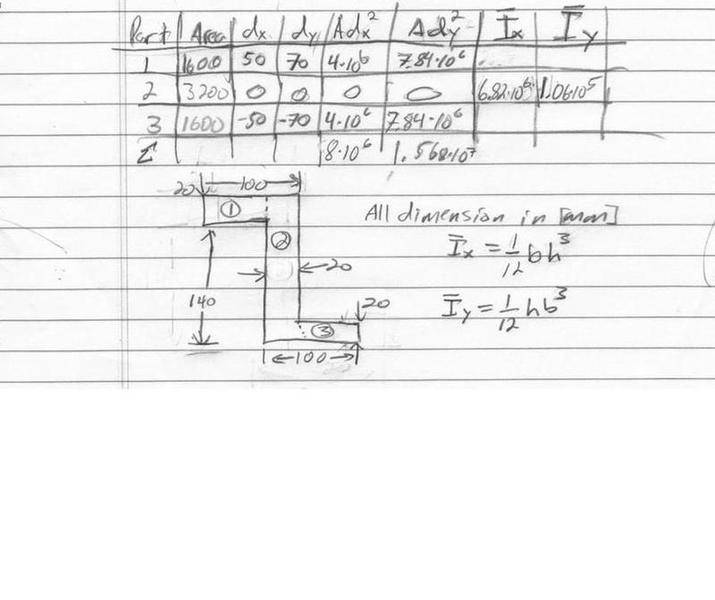 Part Area dx dy Adx² Ady² Ī_x Ī_y
1 1600 50 70 4·10⁶ 7.84·10⁶
2 3200 0 0 0 0 6.82·10⁶ 1.06·10⁵
3 1600 -50 -70 4·10⁶ 7.84·10⁶
Σ 8·10⁶ 1.568·10⁷
20 100
①
All dimension in [mm]
②
Ī_x = 1/12 bh³
20
140
20
Ī_y = 1/12 hb³
③
100